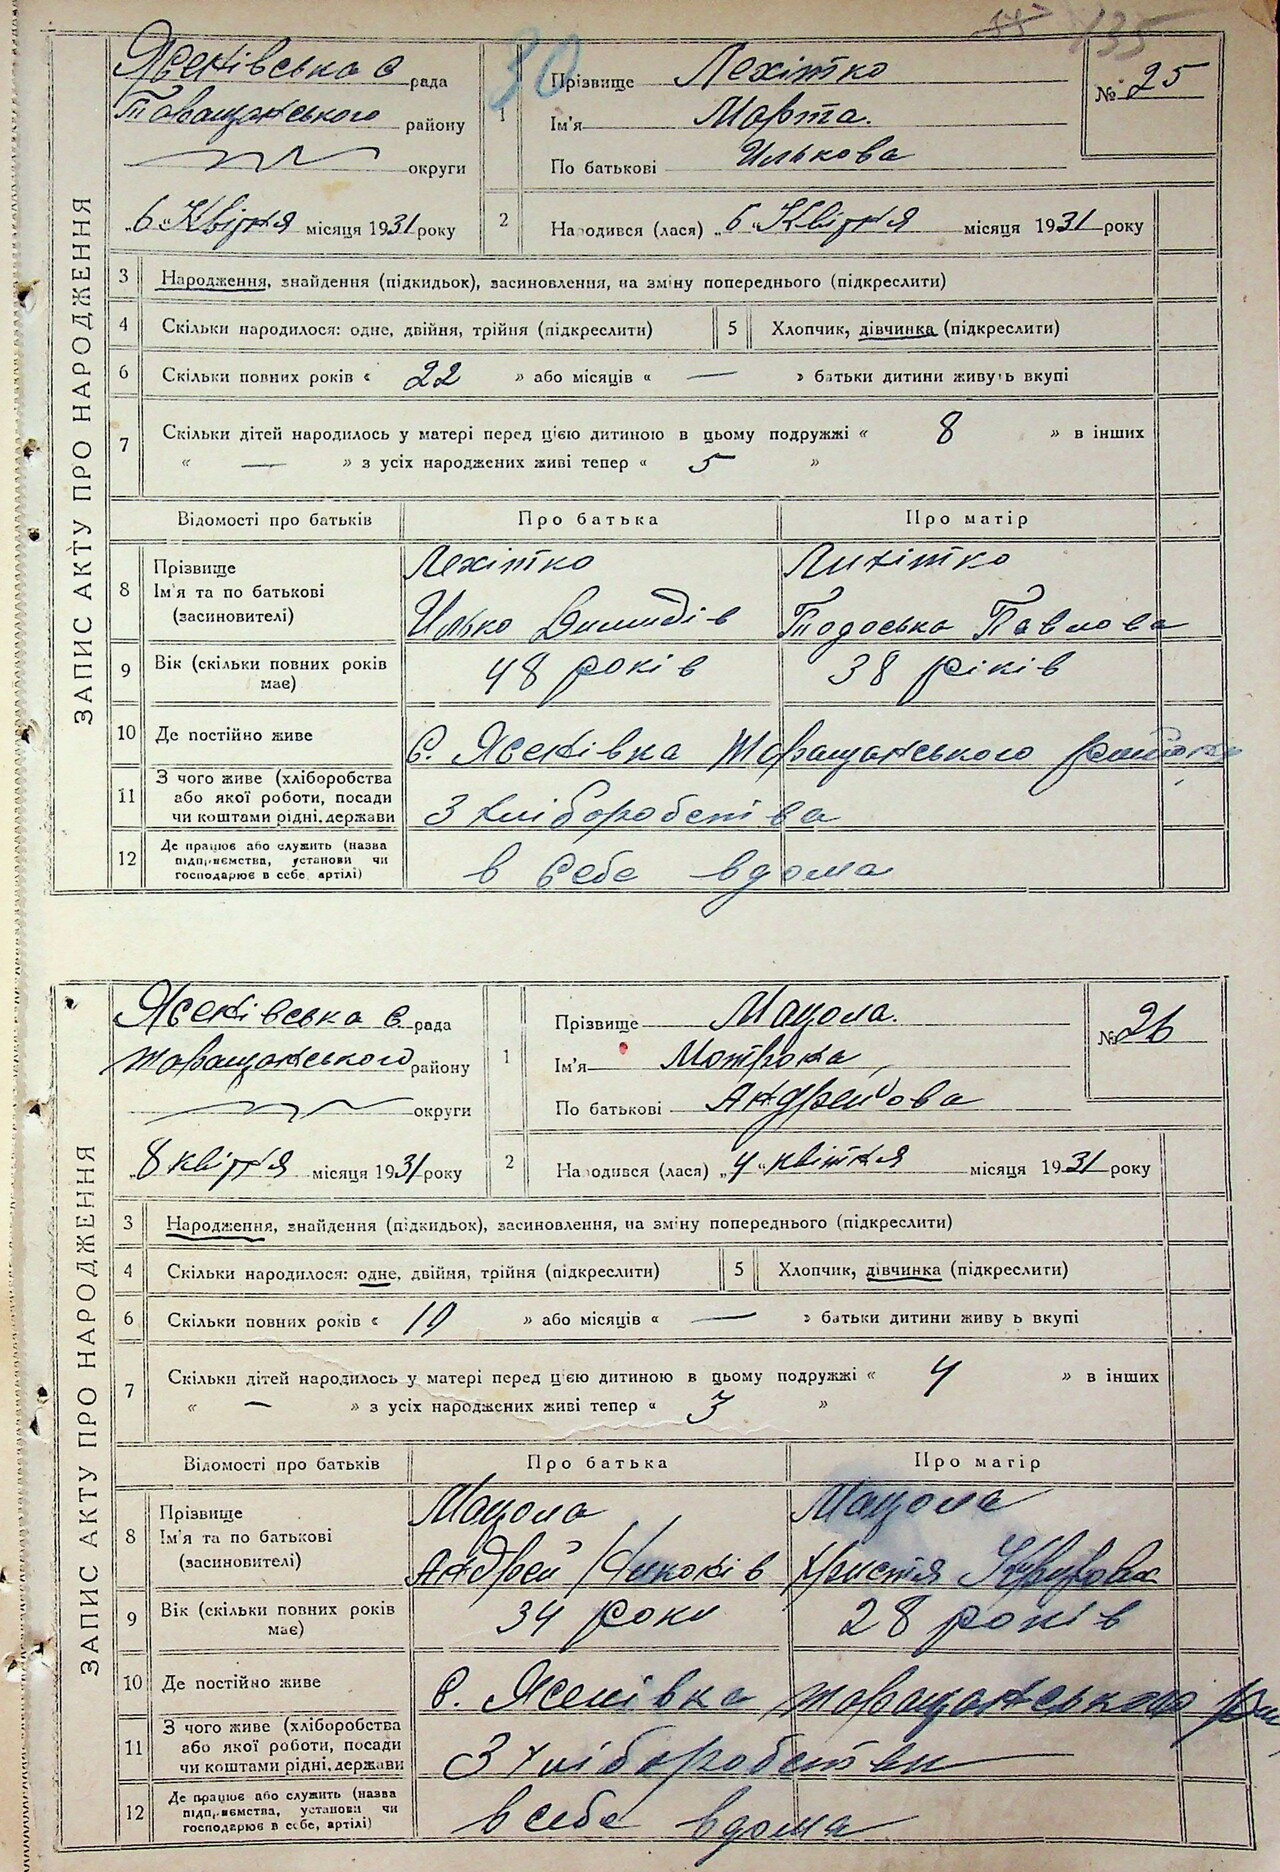 135
ЗАПИС АКТУ ПРО НАРОДЖЕННЯ
Ясенівська с рада
Таращанського району
округи
„6" Квітня місяця 1931 року
30
1
Прізвище Лехітко
Ім'я Марта.
По батькові Илькова
№ 25
2
Народився (лася) „6" Квітня місяця 1931 року
3 Народження, знайдення (підкидьок), засиновлення, на зміну попереднього (підкреслити)
4 Скільки народилося: одне, двійня, трійня (підкреслити) 5 Хлопчик, дівчинка (підкреслити)
6 Скільки повних років « 22 » або місяців « — » батьки дитини живуть вкупі
7 Скільки дітей народилось у матері перед цією дитиною в цьому подружжі « 8 » в інших
« — » з усіх народжених живі тепер « 5 »
Відомості про батьків Про батька Про матір
8 Прізвище Ім'я та по батькові (засиновителі)
Лехітко Лихітко
Илько Тодоська Павлова
9 Вік (скільки повних років має) 48 років 38 ріків
10 Де постійно живе С. Ясенівка Таращанського району
11 З чого живе (хліборобства або якої роботи, посади чи коштами рідні, держави З хліборобства
12 Де працює або служить (назва підприємства, установи чи господарює в себе, артілі) в себе вдома
ЗАПИС АКТУ ПРО НАРОДЖЕННЯ
Ясенівська с. рада
Таращанського району
округи
„8 квітня місяця 1931 року
1
Прізвище Мацола.
Ім'я Мотрона,
По батькові Андрейова
№ 26
2
Народився (лася) „4" квітня місяця 1931 року
3 Народження, знайдення (підкидьок), засиновлення, на зміну попереднього (підкреслити)
4 Скільки народилося: одне, двійня, трійня (підкреслити) 5 Хлопчик, дівчинка (підкреслити)
6 Скільки повних років « 10 » або місяців « — » батьки дитини живу ь вкупі
7 Скільки дітей народилось у матері перед цією дитиною в цьому подружжі « 4 » в інших
« — » з усіх народжених живі тепер « 3 »
Відомості про батьків Про батька Про матір
8 Прізвище Ім'я та по батькові (засиновителі)
Мацола Мацола
Андрей Христя
9 Вік (скільки повних років має) 34 роки 28 років
10 Де постійно живе С. Ясенівка Таращанського
11 З чого живе (хліборобства або якої роботи, посади чи коштами рідні, держави З хліборобства
12 Де працює або служить (назва підприємства, установи чи господарює в себе, артілі) в себе вдома